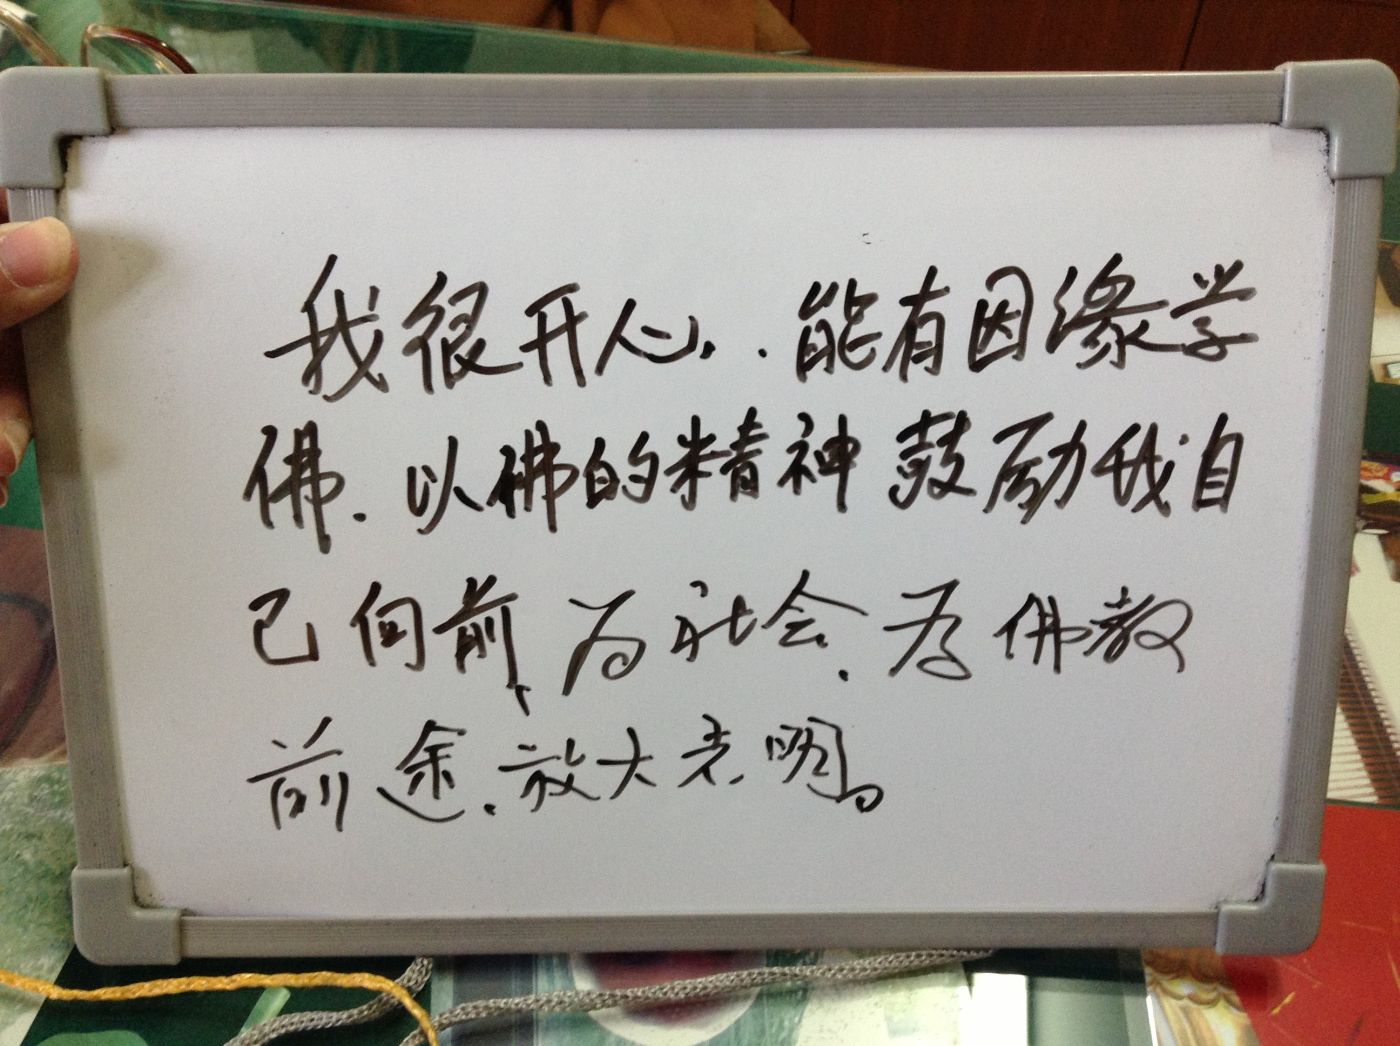 我很开心，能有因缘学
佛.以佛的精神鼓励我自
己向前、为社会.为佛教
前途.放大光明。